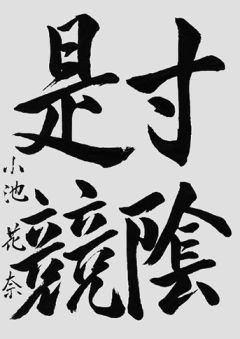 寸陰
是競
小池花奈